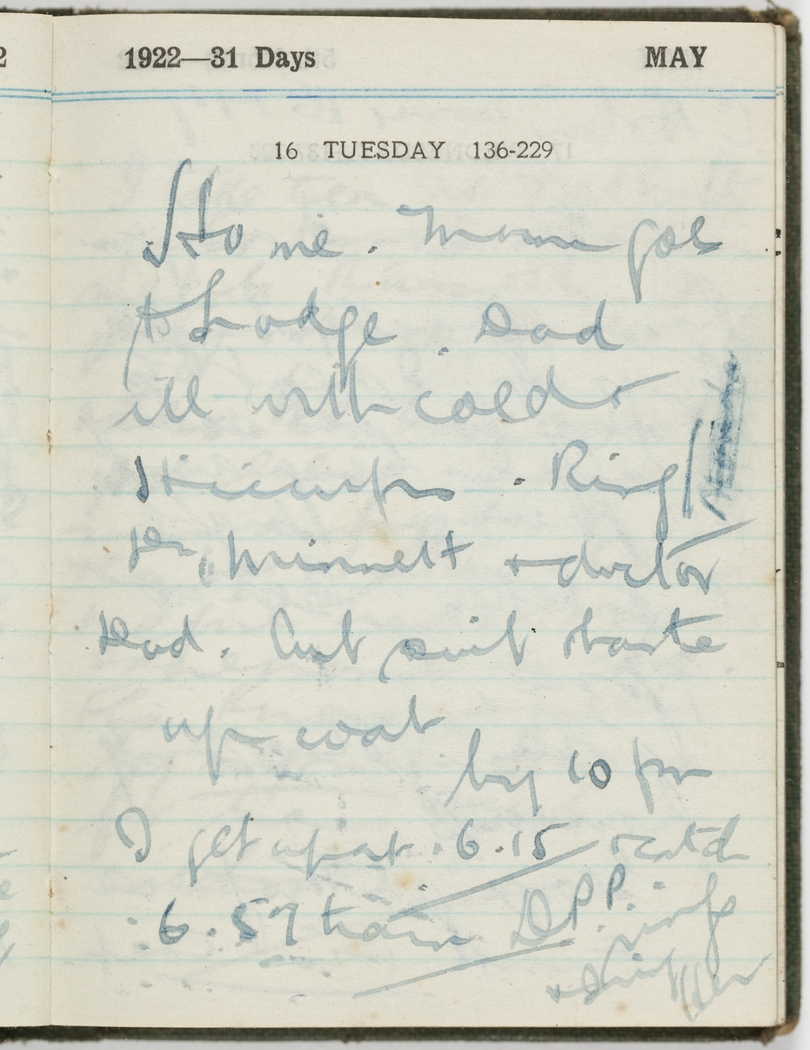 2
1922—31 Days MAY
16 TUESDAY 136-229
Home. Mum goes
to Lodge. Dad
ill with cold +
Hiccups. Ring
Dr. Minnett + doctor
Dad. Cut suit baste
up coat
by 10 pm
I get up at 6.15 + catch
6.57 train D.P.P. rings